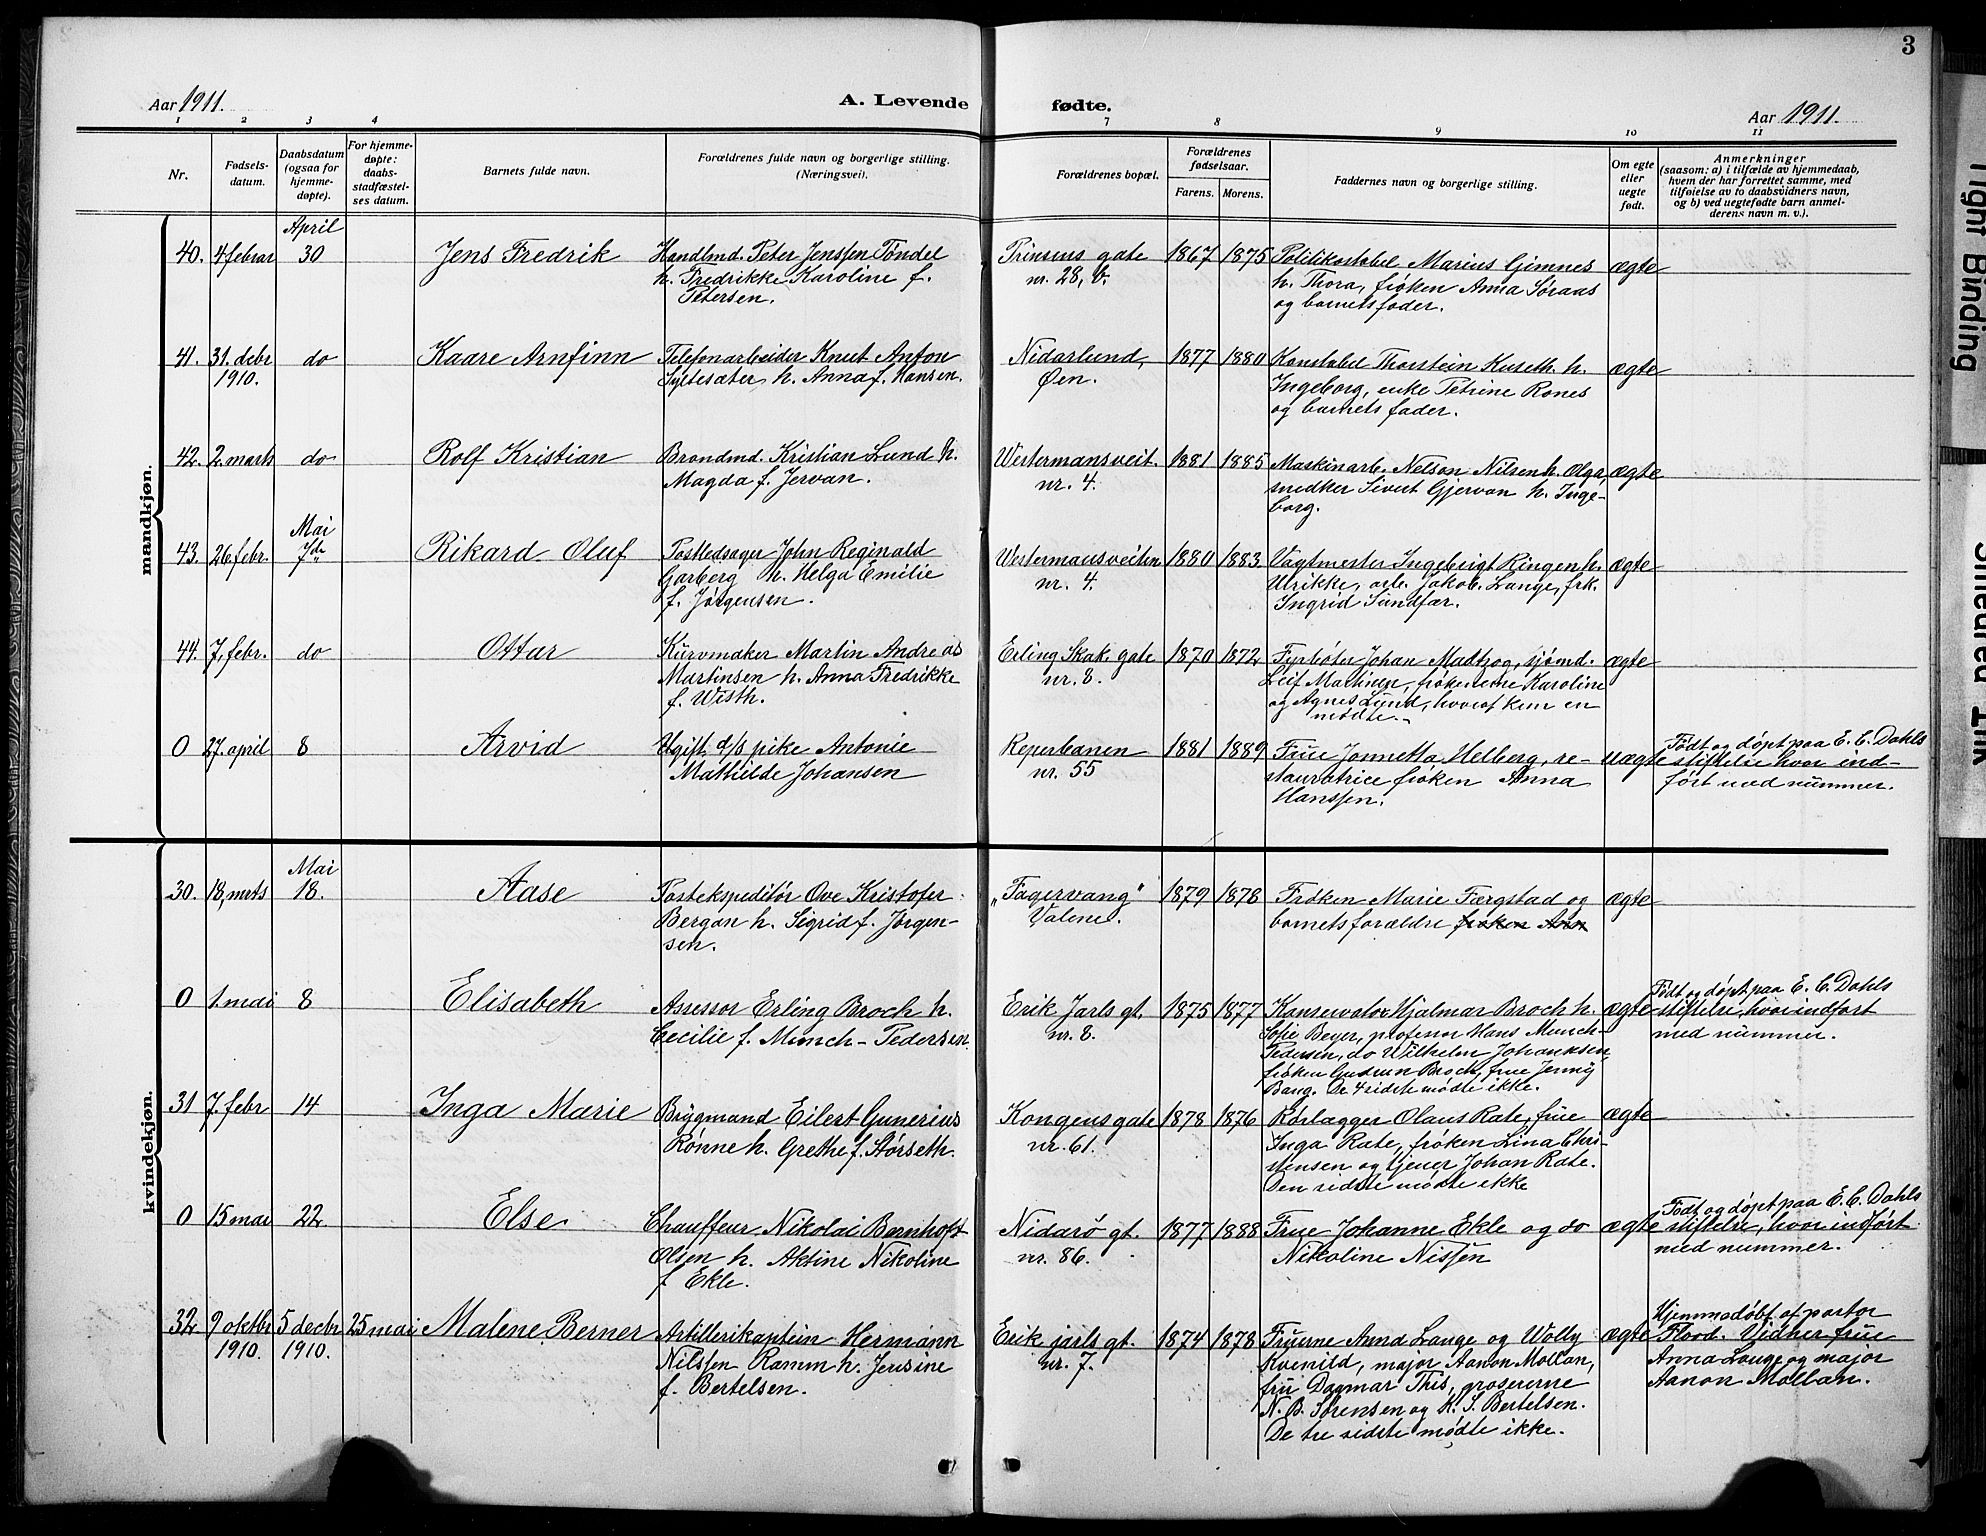 3
Aar 1911.
A. Levende fødte.
Aar 1911.
1 2 3 4 7 8 9 10 11
Nr.
Fødsels-
datum.
Daabsdatum
(ogsaa for
hjemme-
døpte).
For hjemme-
døpte:
daabs-
stadfæstel-
ses datum.
Barnets fulde navn.
Forældrenes fulde navn og borgerlige stilling.
(Næringsvei).
Forældrenes bopæl.
Forældrenes
fødselsaar.
Farens. Morens.
Faddernes navn og borgerlige stilling.
Om egte
eller
uegte
født.
Anmerkninger
(saasom: a) i tilfælde av hjemmedaab,
hvem der har forrettet samme, med
tilføielse av to daabsvidners navn,
og b) ved uegtefødte barn anmel-
derens navn m. v.).
mandkjøn.
40. 4 februar April 30 Jens Fredrik
Handlmd. Peter Jenssen Tøndel
h. Fredrikke Karoline f.
Petersen.
Prinsens gate
nr. 28, b.
1867 1875
Politikostabel Marius Gimnes
h. Thora, frøken Anna Søraas
og barnets fader.
ægte
41. 31. debr 1910. do Kaare Arnfinn
Telefonarbeider Knut Anton
Syltesæter, h. Anna f. Hansen.
Nidarlund,
Øen.
1877 1880
Konstabel Thorstein Kuseth h.
Ingeborg, enke Petrine Rones
og barnets fader.
ægte
42. 2. marts do Rolf Kristian
Brandmd. Kristian Lund h.
Magda f. Jervan.
Westermansveit.
nr. 4.
1881 1885
Maskinarb. Nelson Nilsen h. Olga,
snedker Sivert Gjervan h. Inge-
borg.
ægte
43. 26 febr. Mai 7de Rikard Oluf
Postledsager John Reginald
Garberg h. Helga Emilie
f. Jørgensen.
Westermansveiten
nr. 4.
1880 1883
Vagtmester Ingebrigt Ringen h.
Ulrikke, arb. Jakob Lange, frk.
Ingrid Sundfær.
ægte
44. 7, febr. do Ottar
Kurvmaker Martin Andreas
Martinsen h. Anna Fredrikke
f. Wisth.
Erling Skak gate
nr. 8.
1870 1872
Fyrbøter Johan Madtzog, sjømd.
Leif Martinsen, frøknerne Karoline
og Agnes Lund, hvoraf kun en
mødte.
ægte
0 27. april 8 Arvid
Ugift pike Antonie
Mathilde Johansen
Reperbanen
nr. 55
1881 1889
Frue Jonnetta Helberg, re-
stauratrice frøken Anna
Hanssen.
uægte
Født og døpt paa E. C. Dahls
stiftelse hvor ind-
ført med nummer.
kvindekjøn.
30. 18, mrts Mai 18. Aase
Postekspeditør Ove Kristofer
Bergan h. Sigrid f. Jørgen-
sen.
„Fagervang"
Valene.
1879 1878
Frøken Marie Færgstad og
barnets forældre frøken Ann
ægte
0 1. mai 8 Elisabeth
Assessor Erling Broch h.
Cecilie f. Munch-Pedersen.
Erik Jarls gt.
nr. 8.
1875 1877
Konservator Hjalmar Broch h.
Sofie Beyer, professor Hans Munch-
Pedersen, do Wilhelm Johanksen,
frøken Gudrun Broch, frue Jenny
Bang. De 4 sidste mødte ikke.
ægte
Født og døpt paa E. C. Dahls
stiftelse, hvor indført
med nummer.
31 7. febr 14 Inga Marie
Bygmand Eilert Gunerius
Rønne h. Grethe f. Størseth.
Kongens gate
nr. 61.
1878 1876
Rørlægger Olaus Rate, frue
Inga Rate, frøken Lina Chri-
stensen og tjener Johan Rate.
Den sidste mødte ikke
ægte
0 15 mai 22 Else
Chauffeur Nikolai Bernhoft
Olsen h. Aktine Nikoline
f. Ekle.
Nidarø gt.
nr. 86.
1877 1888
Frue Johanne Ekle og do
Nikoline Nissen
ægte
Født og døpt paa E. C. Dahls
stiftelse, hvor indført
med nummer.
32. 9 oktbr 1910. 5 decbr 1910. 25 mai Malene Berner
Artillerikaptein Hermann
Nilssen Ramm h. Jensine
f. Bertelsen.
Erik jarls gt.
nr. 7.
1874 1878
Fruerne Anna Lange og Wolly
Kvenild, major Aanon Mollan,
fru Dagmar This, groserene
N. B. Sørensen og K. S. Bertelsen.
De tre sidste mødte ikke.
ægte
Hjemmedøbt af pastor
Flood. Vidner frue
Anna Lange og major
Aanon Mollan.
Tight Binding